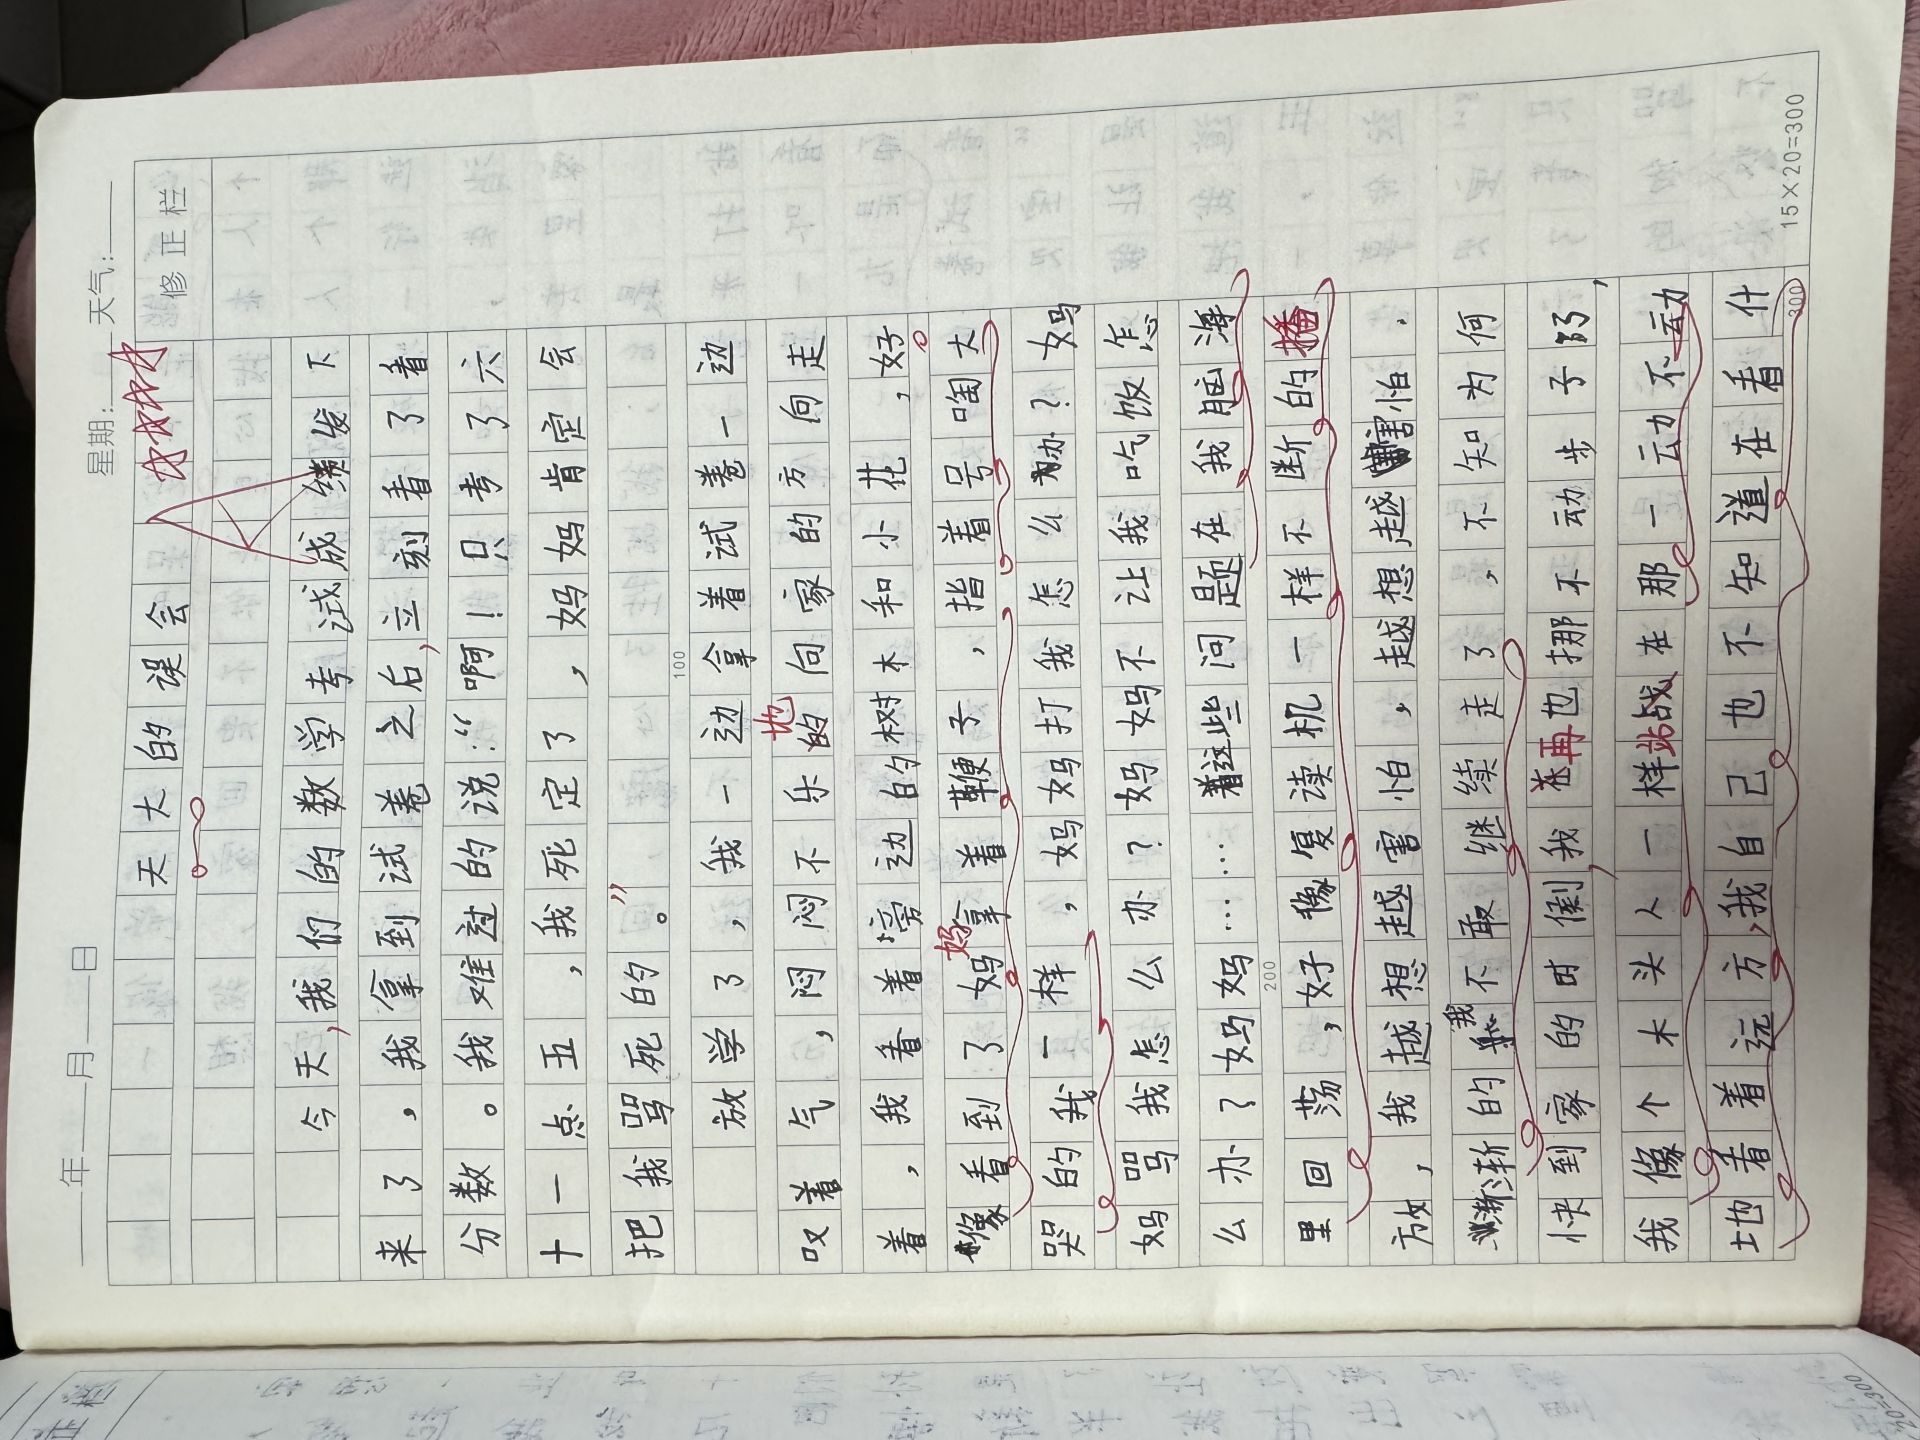 年 月 日 星期: 天气:
修正栏
天大的误会
今天,我们的数学考试成绩发下
来了,我拿到试卷之后,立刻看了看
分数。我难过的说:“啊!只考了六
十一点五,我死定了,妈妈肯定会
把我骂死的。”
100
放学了,我一边拿着试卷一边
叹着气,闷闷不乐地的向家的方向走
着,我看着旁边的树木和小花,好
像看到了妈妈拿着鞭子,指着号啕大
哭的我一样,妈妈打我怎么办?妈
妈骂我怎么办?妈妈不让我吃饭怎
么办?妈妈……着这些问题在我脑海
200
里回荡,好像复读机一样不断的播
放,我越想越害怕,越想越害怕.
渐渐的我不敢继续走了,不知为何
快到家的时候我,再也挪不动步子了,
我像个木头人一样站在那一动不动
地看着远方,我自己也不知道在看什
300
15×20=300
20=300
正栏